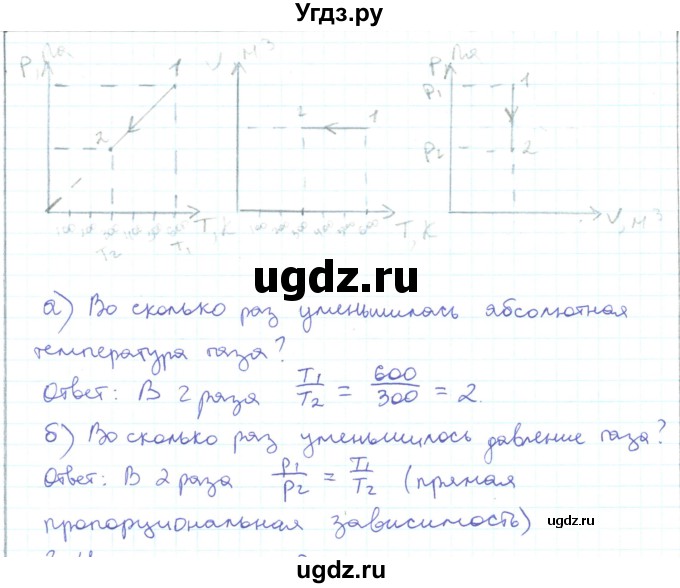 Угдз.ру
P, Па
1
2
100 200 300 400 500 600
T, К
T2
T1
V, м3
2
1
T, К
P, Па
P1
1
P2
2
V, м3
ugdz.ru
а) Во сколько раз уменьшилась абсолютная
температура газа?
Ответ: В 2 раза T1/T2 = 600/300 = 2.
б) Во сколько раз уменьшилось давление газа?
Ответ: В 2 раза P1/P2 = T1/T2 (прямая
пропорциональная зависимость)
ugdz.ru
ugdz.ru